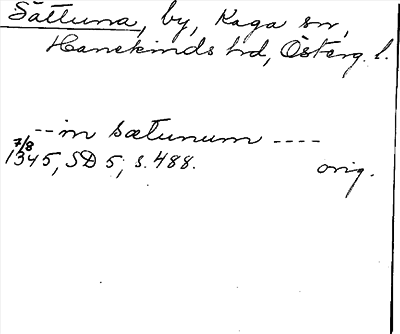 Sättuna, by, Kaga sn,
Hanekinds hd, Österg. l.
-- in sætunum ----
7/8
1345, SD 5, s. 488. orig.